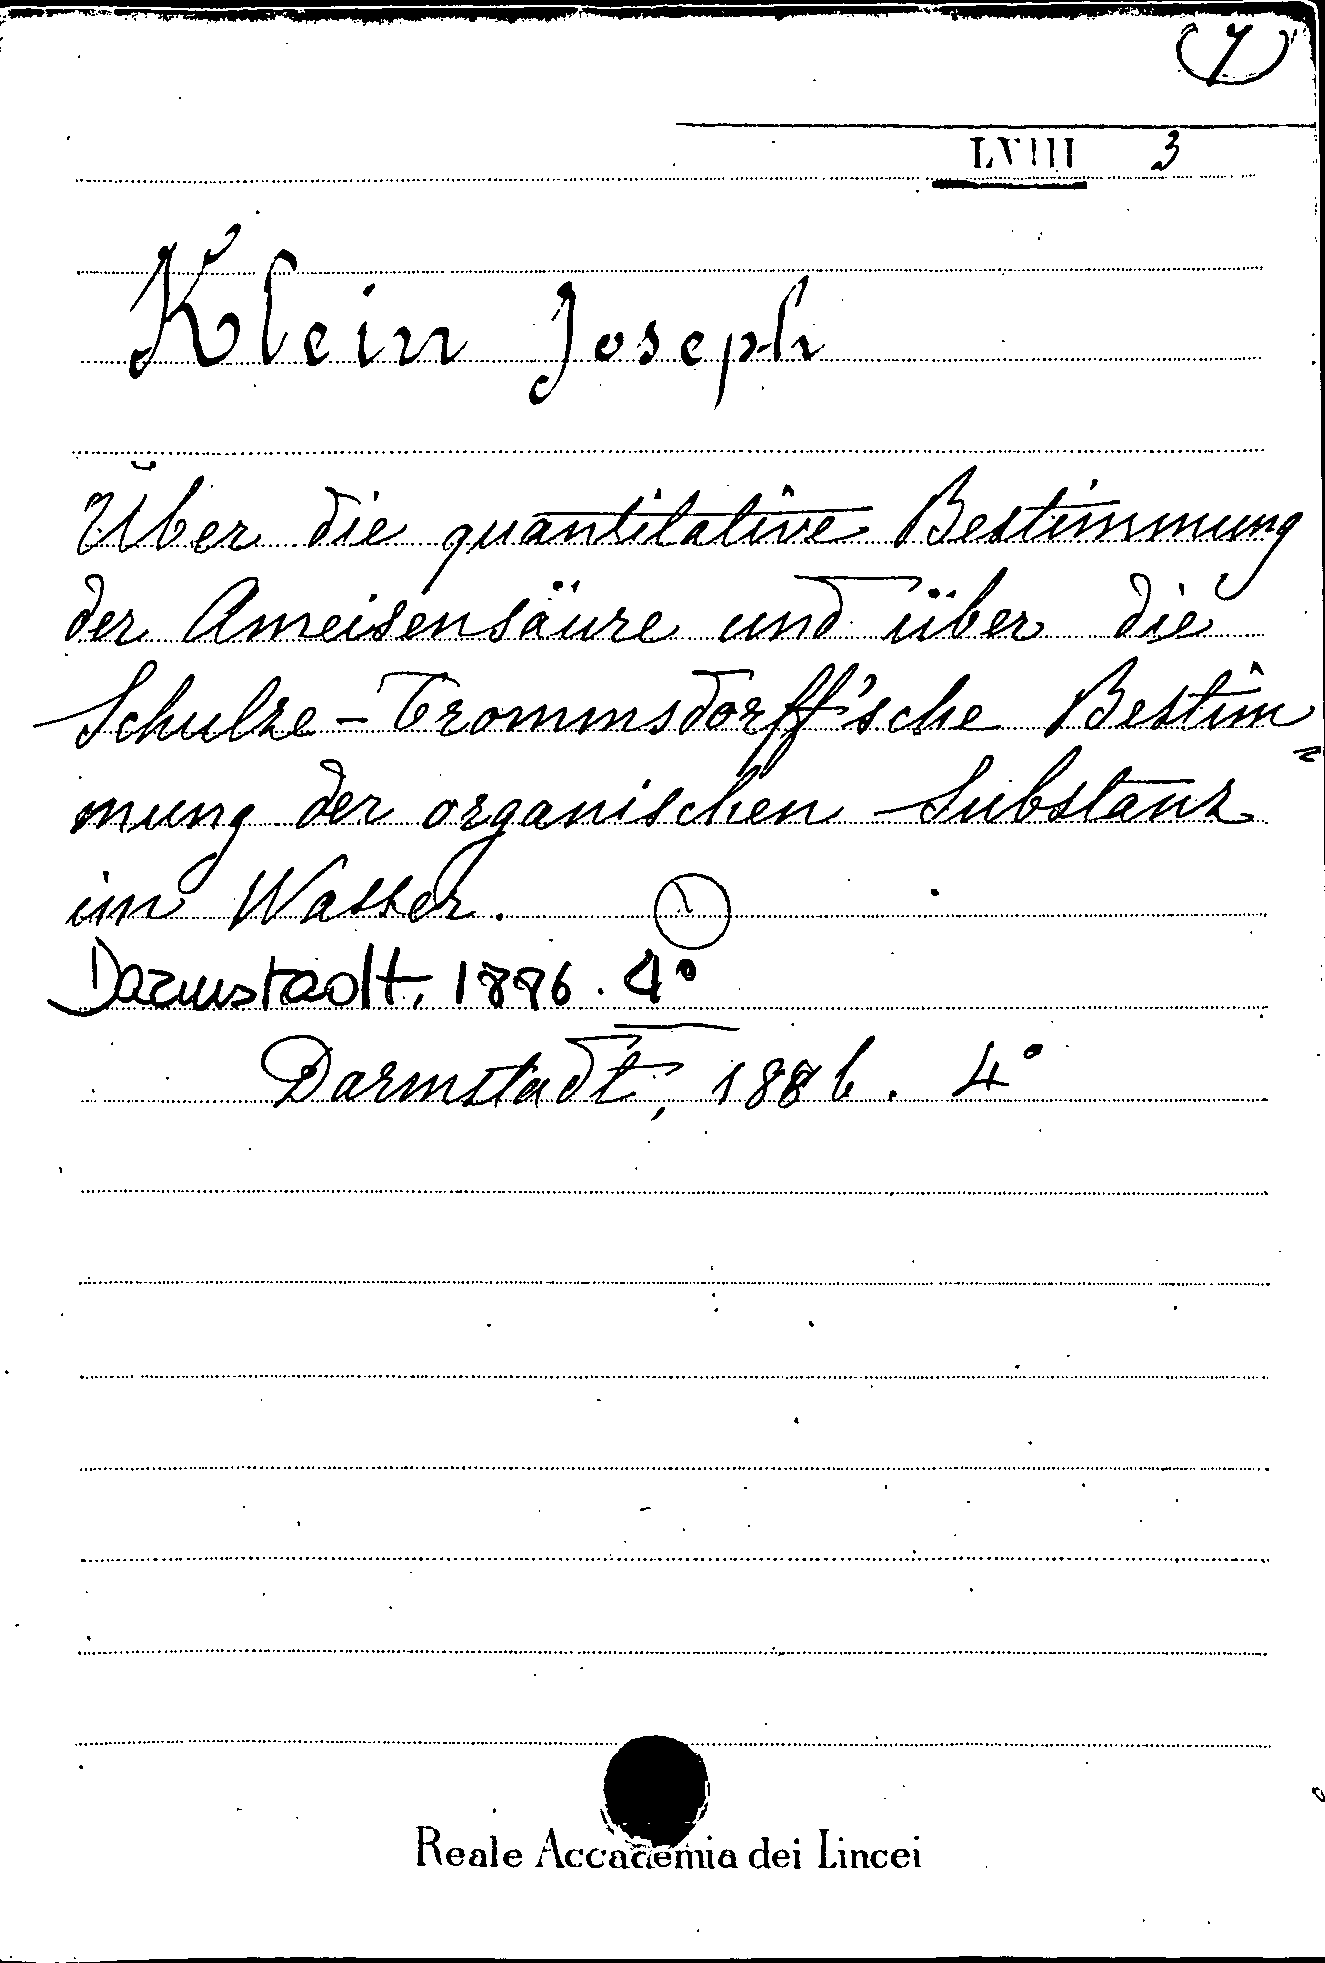 7
LVIII 3
Klein Joseph
Über die quantitative Bestimmung
der Ameisensäure und über die
Schulze-Trommsdorff'sche Bestim=
mung der organischen Substanz
im Wasser.
Darmstadt, 1886. 4°
Darmstadt, 1886. 4°
Reale Accademia dei Lincei